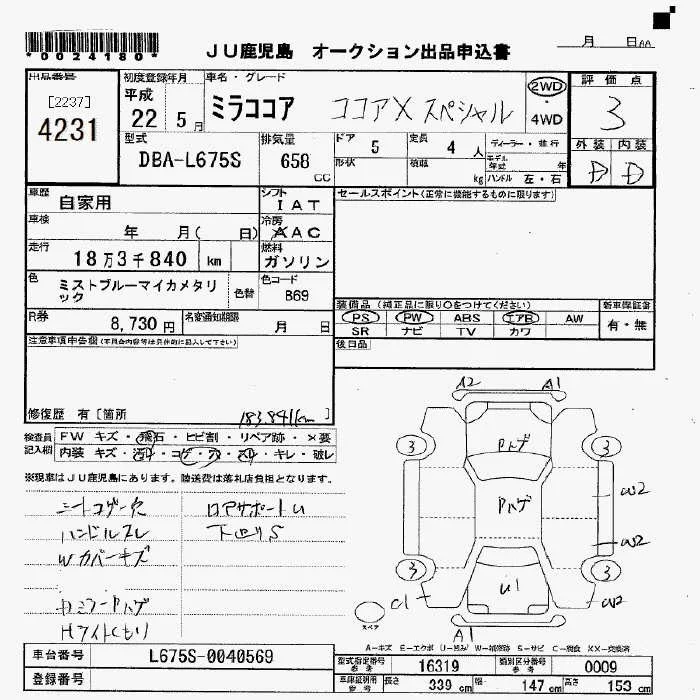 *0024180*
JU鹿児島 オークション出品申込書
月 日AA
出品番号
[2237]
4231
初度登録年月
平成
22 5月
車名・グレード
ミラココア ココアX スペシャル
2WD
・
4WD
評価点
3
外装 内装
D D
型式
DBA-L675S
排気量
658
CC
ドア 5
定員 4 人
形状
積載 kg
ディーラー・並行
モデル年式 年
ハンドル 左・右
車歴
自家用
シフト
IAT
車検
年 月( 日)
冷房
AAC
走行
18万3千840 km
燃料
ガソリン
色
ミストブルーマイカメタリック
色替
色コード
B69
R券
8,730円
名変通知期限
月 日
セールスポイント(正常に機能するものに限ります)
装備品(純正品に限り〇をつけてください)
PS PW ABS エアB AW
SR ナビ TV カワ
新車保証書
有・無
後日品
注意事項申告欄(不具合内容等は具体的に記入して下さい)
修復歴 有[箇所
183,841km)
検査員
記入欄
FW キズ・飛石・ヒビ割・リペア跡・×要
内装 キズ・汚れ・コゲ・穴・スレ・キレ・破レ
※現車はJU鹿児島にあります。陸送費は落札店負担となります。
シートコゲ穴
ハンドルスレ
Wカバーキズ
ロアサポートU
下回りS
カラミラーPハゲ
Hライトくもり
A2 A1
Pハゲ
3 3
Pハゲ
W2
W2
3 3
U1
C1 W2
A1
スペア
A−キズ E−エクボ U−凹み W−補修跡 S−サビ C−腐食 XX−交換済
車台番号
L675S-0040569
登録番号
型式指定番号
参考
16319
類別区分番号
参考
0009
車庫証明用
参考
長さ 339 cm
幅 147 cm
高さ 153 cm